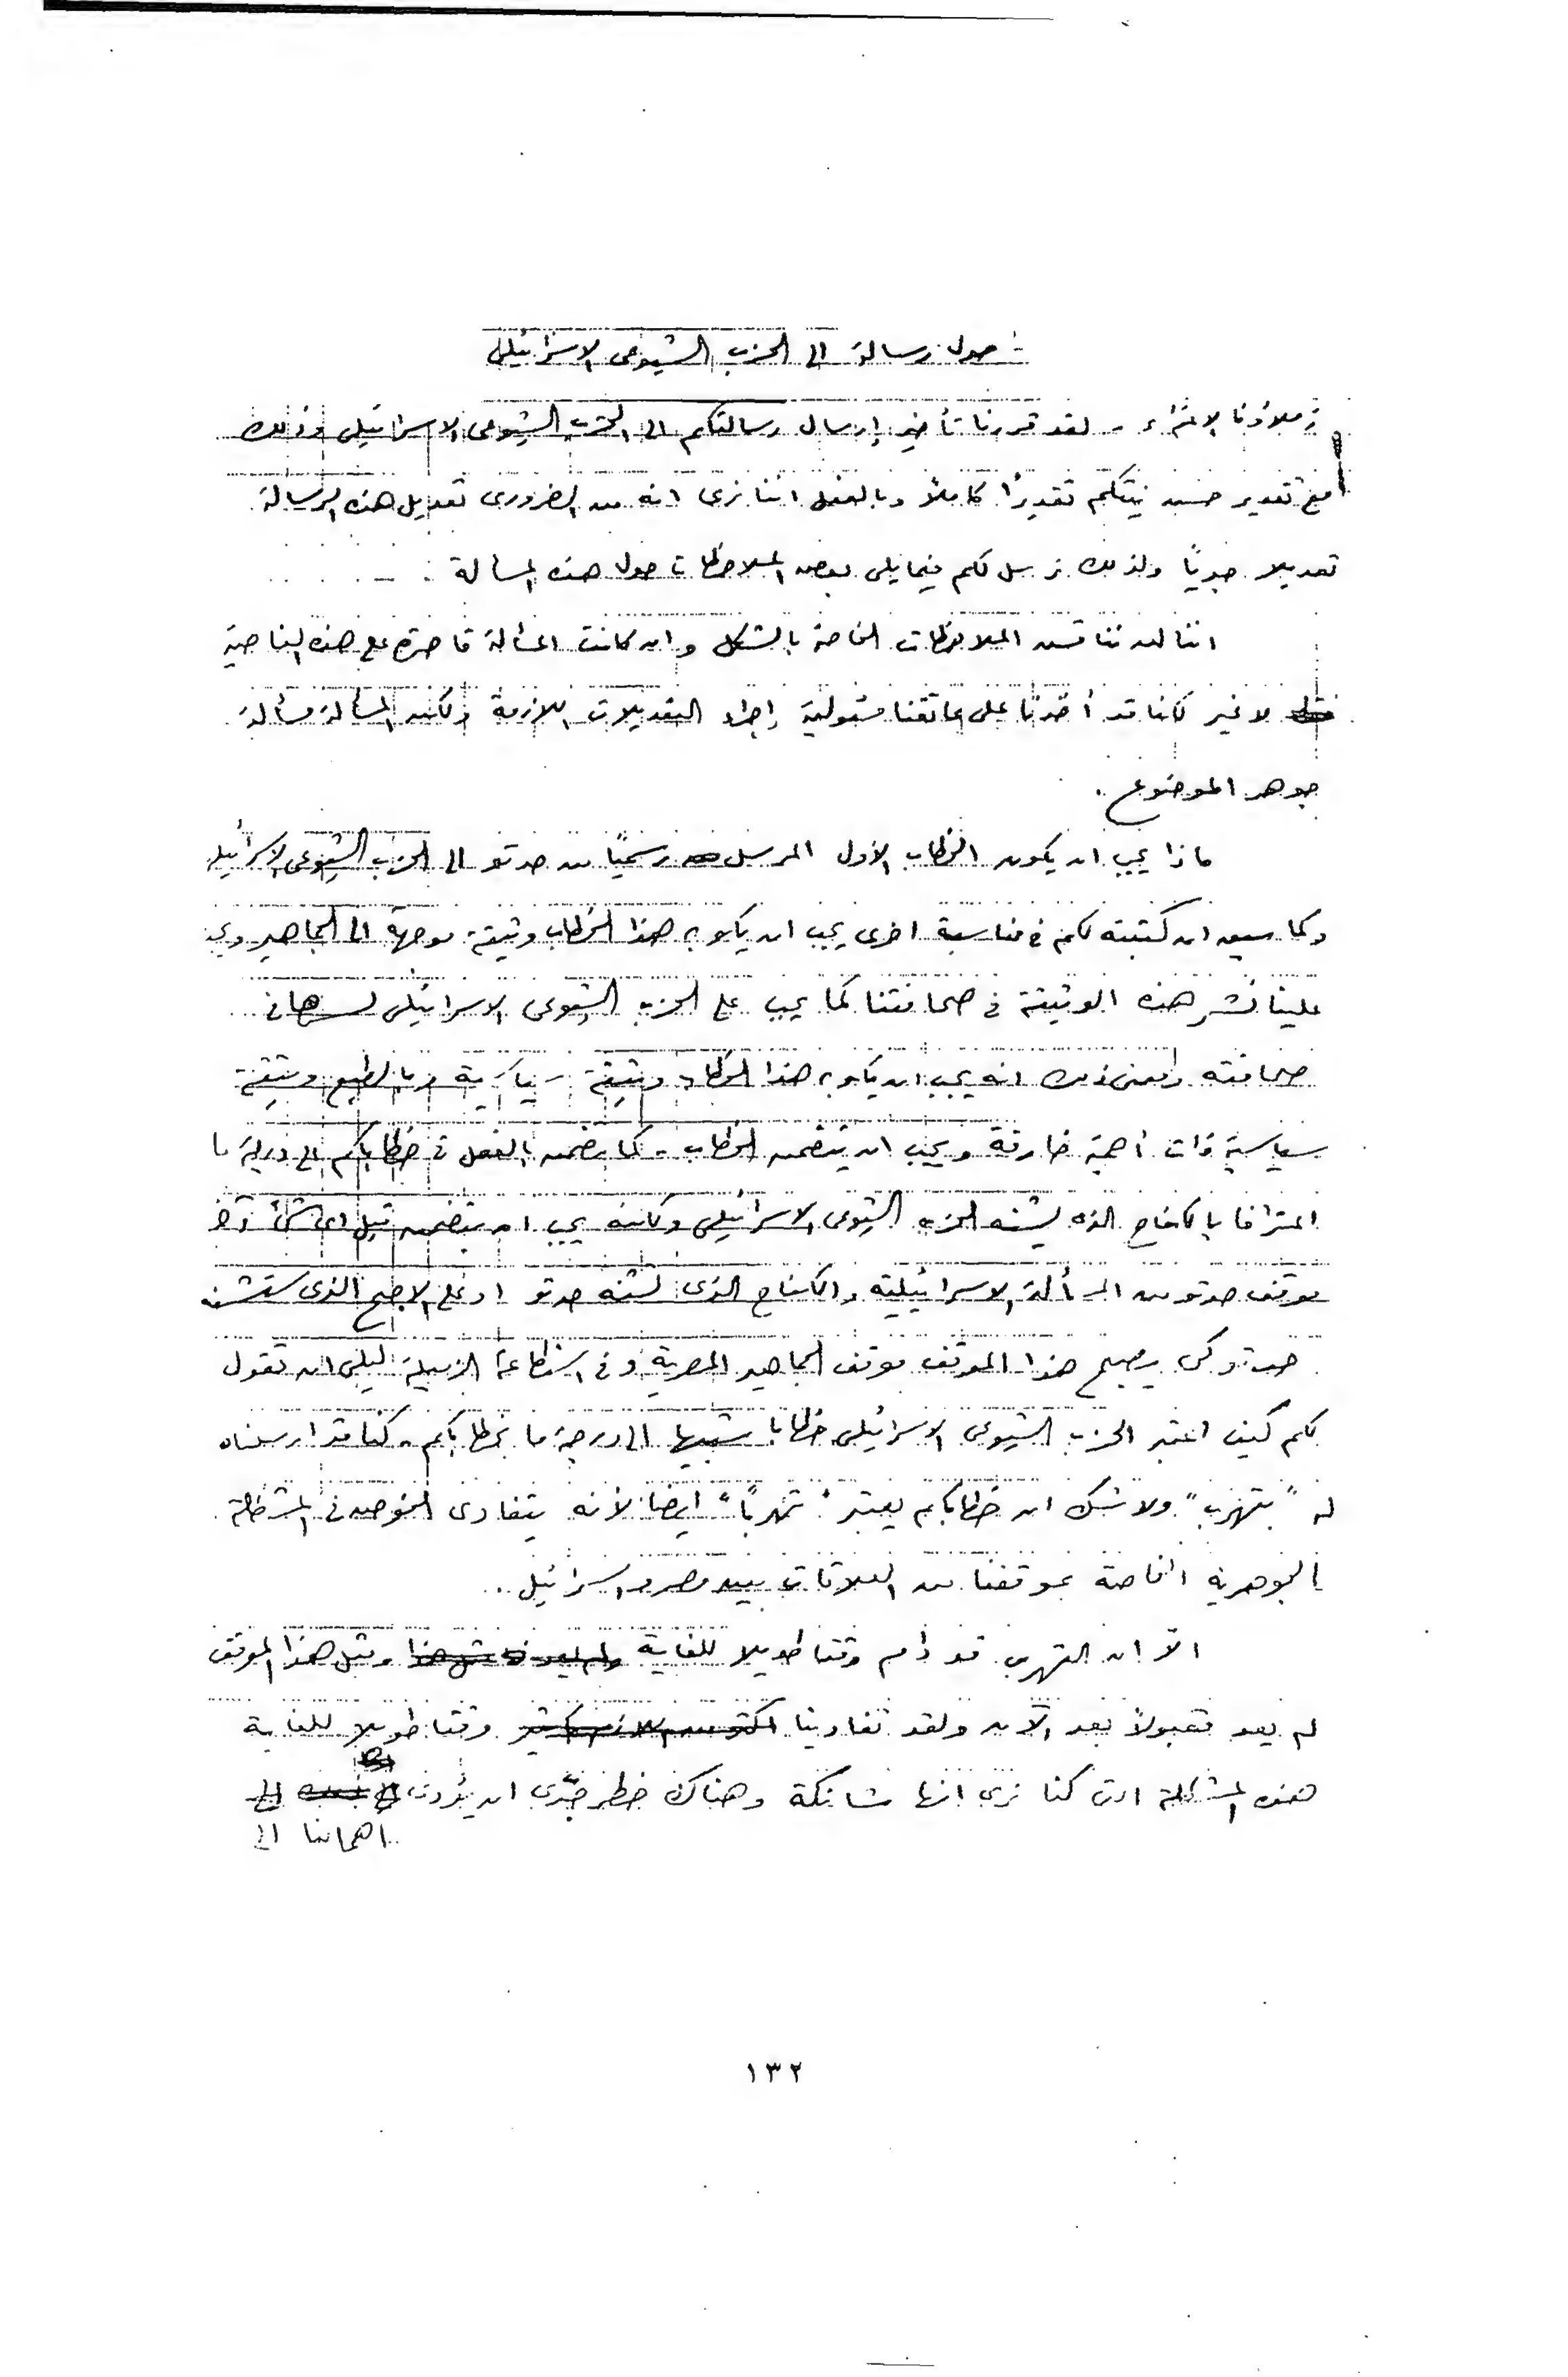 حول رسالة الى الحزب الشيوعى الاسرائيلى
زملاؤنا الاعزاء - لقد قررنا تأخير إرسال رسالتكم الى الحزب الشيوعى الاسرائيلى وذلك
مع تقدير حسن نيتكم تقديرًا كاملاً وبالفعل اننا نرى انه من الضرورى تعديل هذه الرسالة
تعديلا جديًا ولذلك نرسل لكم فيما يلى بعض الملاحظات حول هذه المسالة :
اننا لن نناقش الملاحظات الخاصة بالشكل وان كانت المسألة قاصرة على هذه الناحية
لا غير لكنا قد أخذنا على عاتقنا مسئولية إجراء التعديلات اللازمة ولكن المسألة مسألة
جوهر الموضوع .
ماذا يجب ان يكون الخطاب الأول المرسل رسميًا من حدتو الى الحزب الشيوعى الاسرائيلى
وكما سبق ان كتبته لكم فى مناسبة اخرى يجب ان يكون هذا الخطاب وثيقة موجهة الى الجماهير ويجب
علينا نشر هذه الوثيقة فى صحافتنا كما يجب على الحزب الشيوعى الاسرائيلى نشرها فى
صحافته ومعنى ذلك انه يجب ان يكون هذا الخطاب وثيقة سياسية وبالطبع وثيقة
سياسية ذات أهمية خارقة ويجب ان يتضمن الخطاب - كما يتضمن بالفعل فى خطابكم الى درجة ما
اعترافا بالكفاح الذى يشنه الحزب الشيوعى الاسرائيلى ولكنه يجب ان يتضمن قبل اى شئ آخر
موقف حدتو من المسألة الاسرائيلية والكفاح الذى تشنه حدتو او على الاصح الذى ستشنه
حدتو كى يصبح هذا الموقف موقف الجماهير المصرية وفى استطاعة الزميلة ليلى ان تقول
لكم كيف اعتبر الحزب الشيوعى الاسرائيلى خطابا شبيها الى درجة ما بخطابكم - كنا قد ارسلناه
له "بتهرب" ولا شك ان خطابكم يعتبر "تهربًا" ايضا لأنه يتفادى الخوض فى المشكلة
الجوهرية الخاصة بموقفنا من العلاقات بين مصر واسرائيل .
الا ان التهرب قد دام وقتا طويلا للغاية ومثل هذا الموقف
لم يعد مقبولاً بعد الآن ولقد تفادينا وقتا طويلا للغاية
هذه المشكلة التى كنا نرى انها شائكة وهناك خطر جدّى ان يؤدى
اهمالنا الى
١٣٢